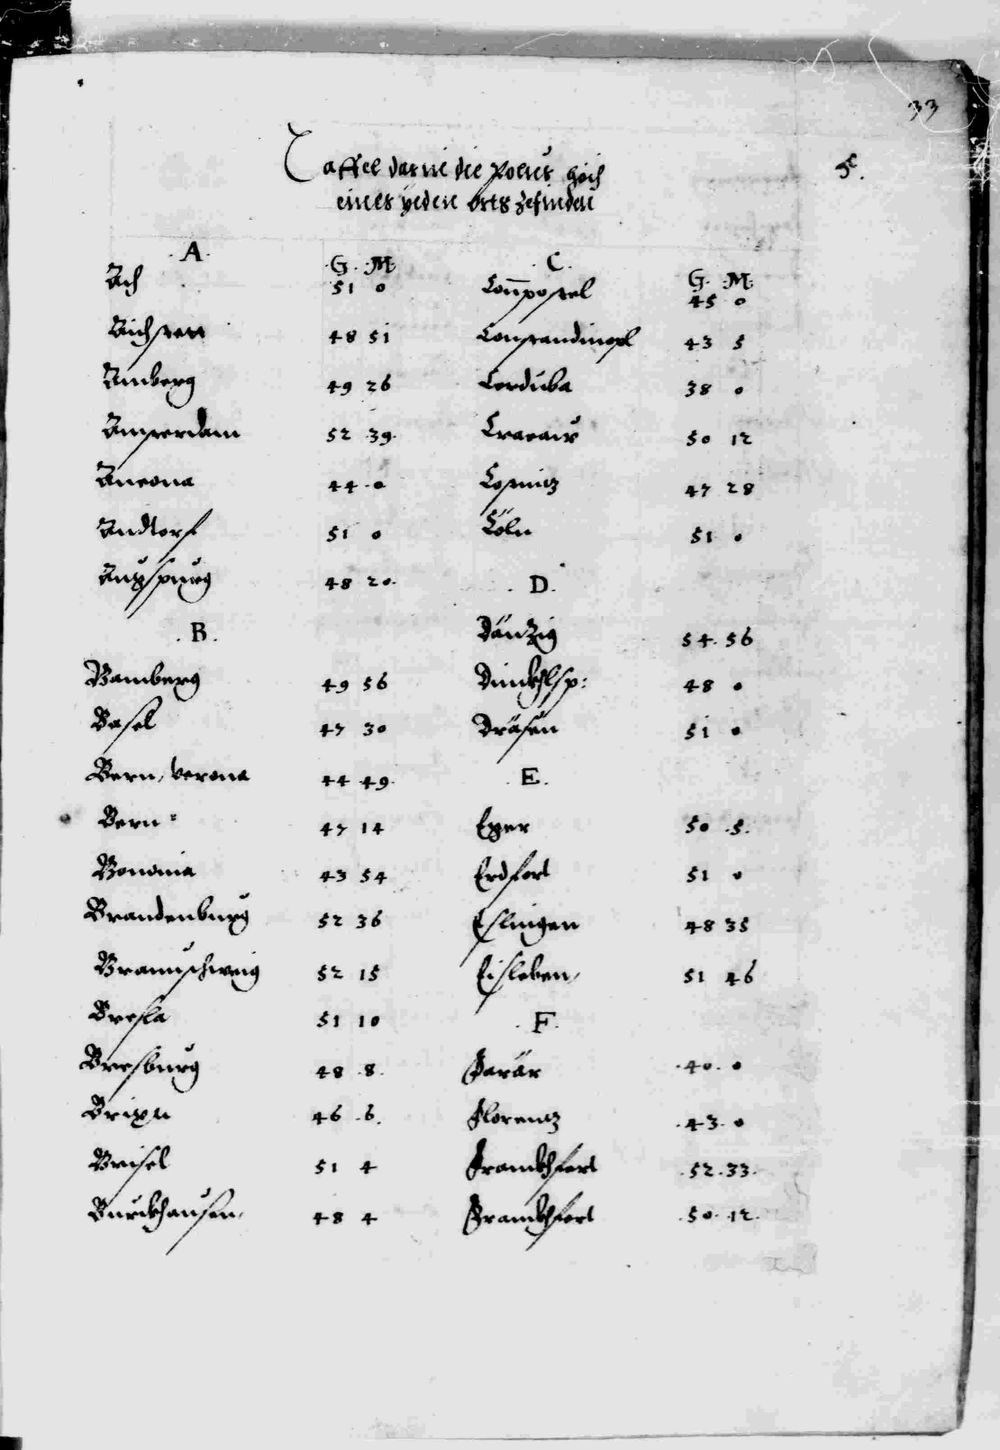 33
Taffel darin die Polus höch
eines yeden orts zefinden
A.
G. M.
Ach 51 0
Aichstett 48 51
Amberg 49 26
Amsterdam 52 39.
Ancona 44 0
Andtorf 51 0
Augspurg 48 20.
B.
Bamberg 49 56
Basel 47 30
Bern, verona 44 49.
Bern 47 14
Bononia 43 54
Brandenburg 52 36
Braunschweig 52 15
Bresla 51 10
Bresburg 48 8.
Brixn 46 6.
Brisel 51 4
Burckhausen, 48 4
C.
G. M.
Compostel 45 0
Constandinopl 43 5
Corduba 38 0
Cracaw 50 12
Costnitz 47 28
Cöln 51 0
D.
Däntzig 54 56
Dinckhlsp: 48 0
Dräsen 51 0
E.
Eger 50 5.
Erdfort 51 0
Eslingen 48 35
Eisleben, 51 46
F.
Farär 40. 0
Florentz 43. 0
Franckhfort 52. 33.
Franckhfort 50. 12.